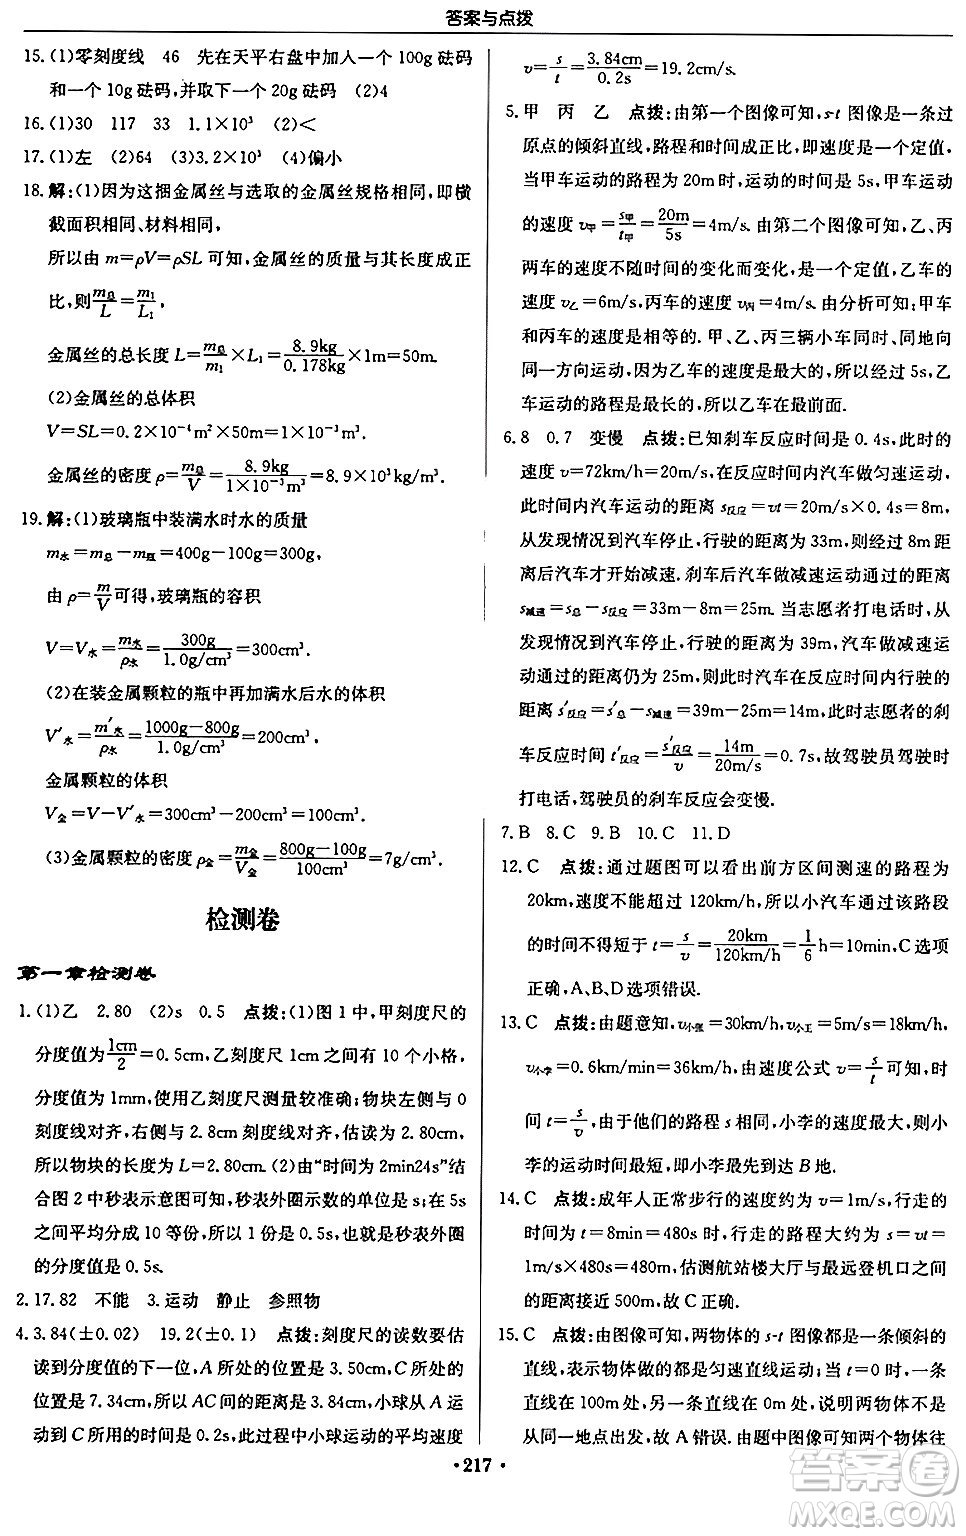 答案与点拨
15. (1)零刻度线 46 先在天平右盘中加入一个 100g 砝码
和一个 10g 砝码,并取下一个 20g 砝码 (2)4
16. (1)30 117 33 1.1×10³ (2)<
17. (1)左 (2)64 (3)3.2×10³ (4)偏小
18. 解:(1)因为这捆金属丝与选取的金属丝规格相同,即横
截面积相同、材料相同,
所以由 m=ρV=ρSL 可知,金属丝的质量与其长度成正
比,则m总/L=m₁/L₁,
金属丝的总长度 L=m总/m₁×L₁=8.9kg/0.178kg×1m=50m.
(2)金属丝的总体积
V=SL=0.2×10⁻⁴m²×50m=1×10⁻³m³,
金属丝的密度 ρ=m总/V=8.9kg/1×10⁻³m³=8.9×10³kg/m³.
19. 解:(1)玻璃瓶中装满水时水的质量
m水=m总-m瓶=400g-100g=300g,
由 ρ=m/V可得,玻璃瓶的容积
V=V水=m水/ρ水=300g/1.0g/cm³=300cm³.
(2)在装金属颗粒的瓶中再加满水后水的体积
V′水=m′水/ρ水=1000g-800g/1.0g/cm³=200cm³,
金属颗粒的体积
V金=V-V′水=300cm³-200cm³=100cm³.
(3)金属颗粒的密度 ρ金=m金/V金=800g-100g/100cm³=7g/cm³.
检测卷
第一章检测卷
1. (1)乙 2.80 (2)s 0.5 点拨:(1)图 1 中,甲刻度尺的
分度值为1cm/2=0.5cm,乙刻度尺 1cm 之间有 10 个小格,
分度值为 1mm,使用乙刻度尺测量较准确;物块左侧与 0
刻度线对齐,右侧与 2.8cm 刻度线对齐,估读为 2.80cm,
所以物块的长度为 L=2.80cm. (2)由“时间为 2min24s”结
合图 2 中秒表示意图可知,秒表外圈示数的单位是 s;在 5s
之间平均分成 10 等份,所以一小格是 0.5s,也就是秒表外圈
的分度值是 0.5s.
2. 17.82 不能 3. 运动 静止 参照物
4. 3.84(±0.02) 19.2(±0.1) 点拨:刻度尺的读数要估
读到分度值的下一位,A 所处的位置是 3.50cm,C 所处的位
置是 7.34cm,所以 AC 间的距离是 3.84cm;小球从 A 运
动到 C 所用的时间是 0.2s,此过程中小球运动的平均速度
v=s/t=3.84cm/0.2s=19.2cm/s.
5. 甲 丙 乙 点拨:由第一个图像可知,s-t 图像是一条过
原点的倾斜直线,路程和时间成正比,即速度是一个定值,
当甲车运动的路程为 20m 时,运动的时间是 5s,甲车运动
的速度 v甲=s甲/t甲=20m/5s=4m/s,由第二个图像可知,乙、丙
两车的速度不随时间的变化而变化,是一个定值,乙车的
速度 v乙=6m/s,丙车的速度 v丙=4m/s.由分析可知:甲车
和丙车的速度是相等的.甲、乙、丙三辆小车同时、同地向
同一方向运动,因为乙车的速度是最大的,所以经过 5s,乙
车运动的路程是最长的,所以乙车在最前面.
6. 8 0.7 变慢 点拨:已知刹车反应时间是 0.4s,此时的
速度 v=72km/h=20m/s,在反应时间内汽车做匀速运动,
此时间内汽车运动的距离 s反应=vt=20m/s×0.4s=8m,
从发现情况到汽车停止,行驶的距离为 33m,经过 8m 的
距离后汽车才开始减速.刹车后汽车做减速运动通过的距离
s减速=s总-s反应=33m-8m=25m.当志愿者打电话时,从
发现情况到汽车停止,行驶的距离为 39m,汽车做减速运
动的距离仍是 25m,则此时汽车在反应时间内行驶的
距离 s′反应=s′总-s减速=39m-25m=14m,此时志愿者的刹
车反应时间 t′反应=s′反应/v=14m/20m/s=0.7s,故驾驶员驾驶时
打电话,驾驶员的刹车反应会变慢.
7. B 8. C 9. B 10. C 11. D
12. C 点拨:通过题图可以看出前方区间测速的路程为
20km,速度不能超过 120km/h,所以小汽车通过该路段
的时间不得短于 t=s/v=20km/120km/h=1/6h=10min,C 选项
正确,A、B、D 选项错误.
13. C 点拨:由题意知,v小强=30km/h,v小王=5m/s=18km/h,
v小李=0.6km/min=36km/h,由速度公式 v=s/t可知,时
间 t=s/v,由于他们的路程 s 相同,小李的速度最大,则小
李的运动时间最短,即小李最先达到 B 地.
14. C 点拨:成年人正常步行的速度约为 v=1m/s,行走
的时间为 t=8min=480s 时,行走的路程大约为 s=vt=
1m/s×480s=480m,估测航站楼大厅与最远登机口之间
的距离接近 500m,故 C 正确.
15. C 点拨:由图像可知,两物体的 s-t 图像都是一条倾斜的
直线,表示物体做的都是匀速直线运动;当 t=0 时,一条
直线过坐标原点,一条直线不过坐标原点,说明两物体不是
从同一地点出发,故 A 错误.由题中图像可知两个物体往
· 217 ·
答案圈
MXQE.COM